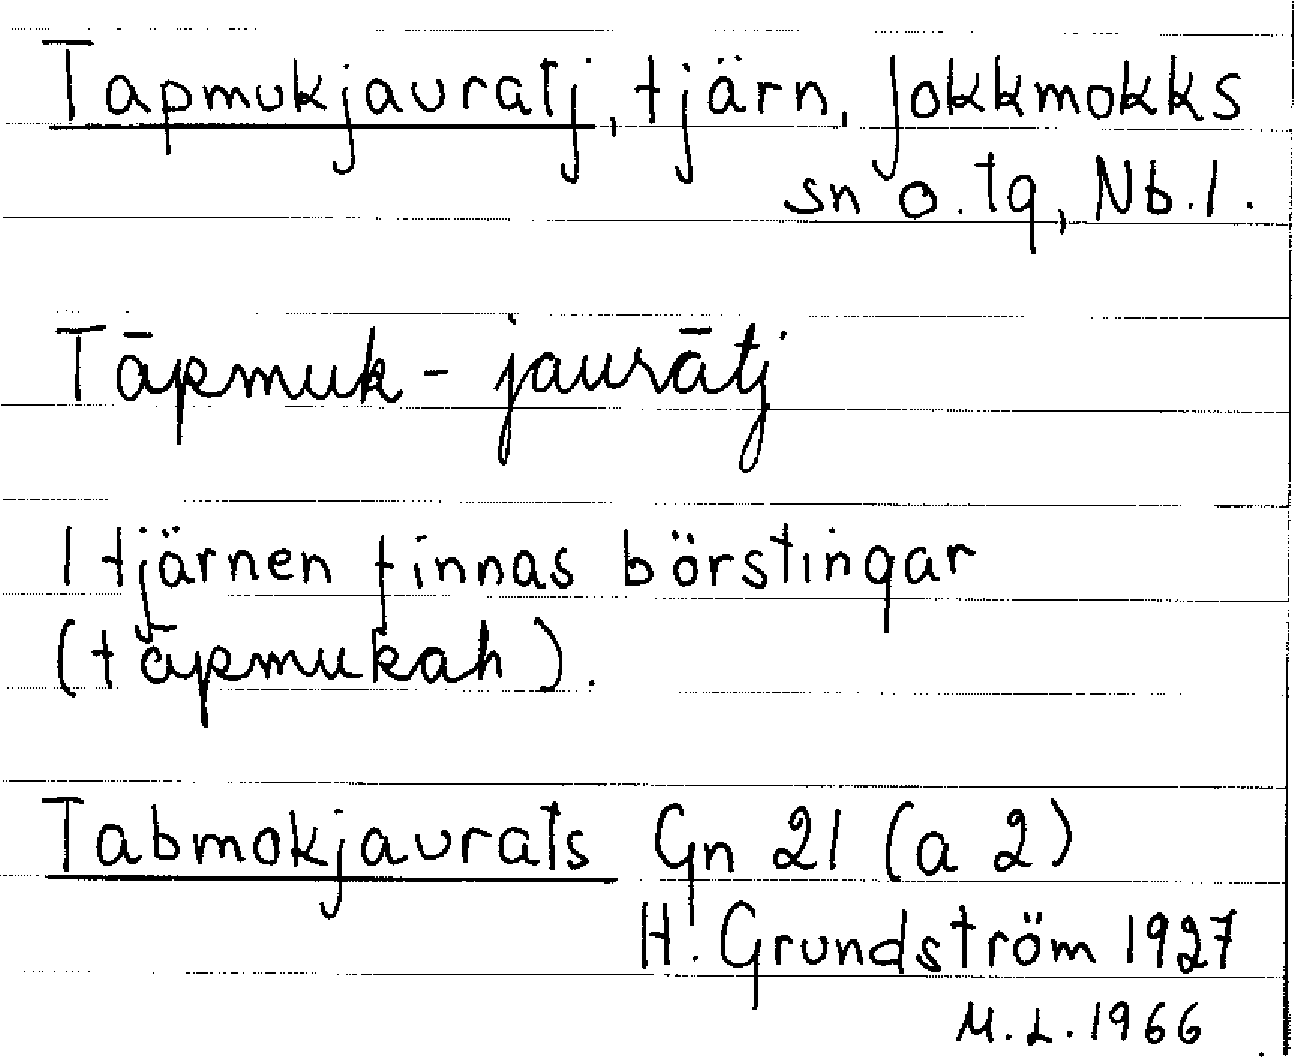 Tapmukjauratj, tjärn, Jokkmokks
sn o. tg, Nb. l.
Tāpmuk - jaurātj
I tjärnen finnas börstingar
(tāpmukah).
Tabmokjaurats Gn 21 (a 2)
H. Grundström 1927
M. L. 1966